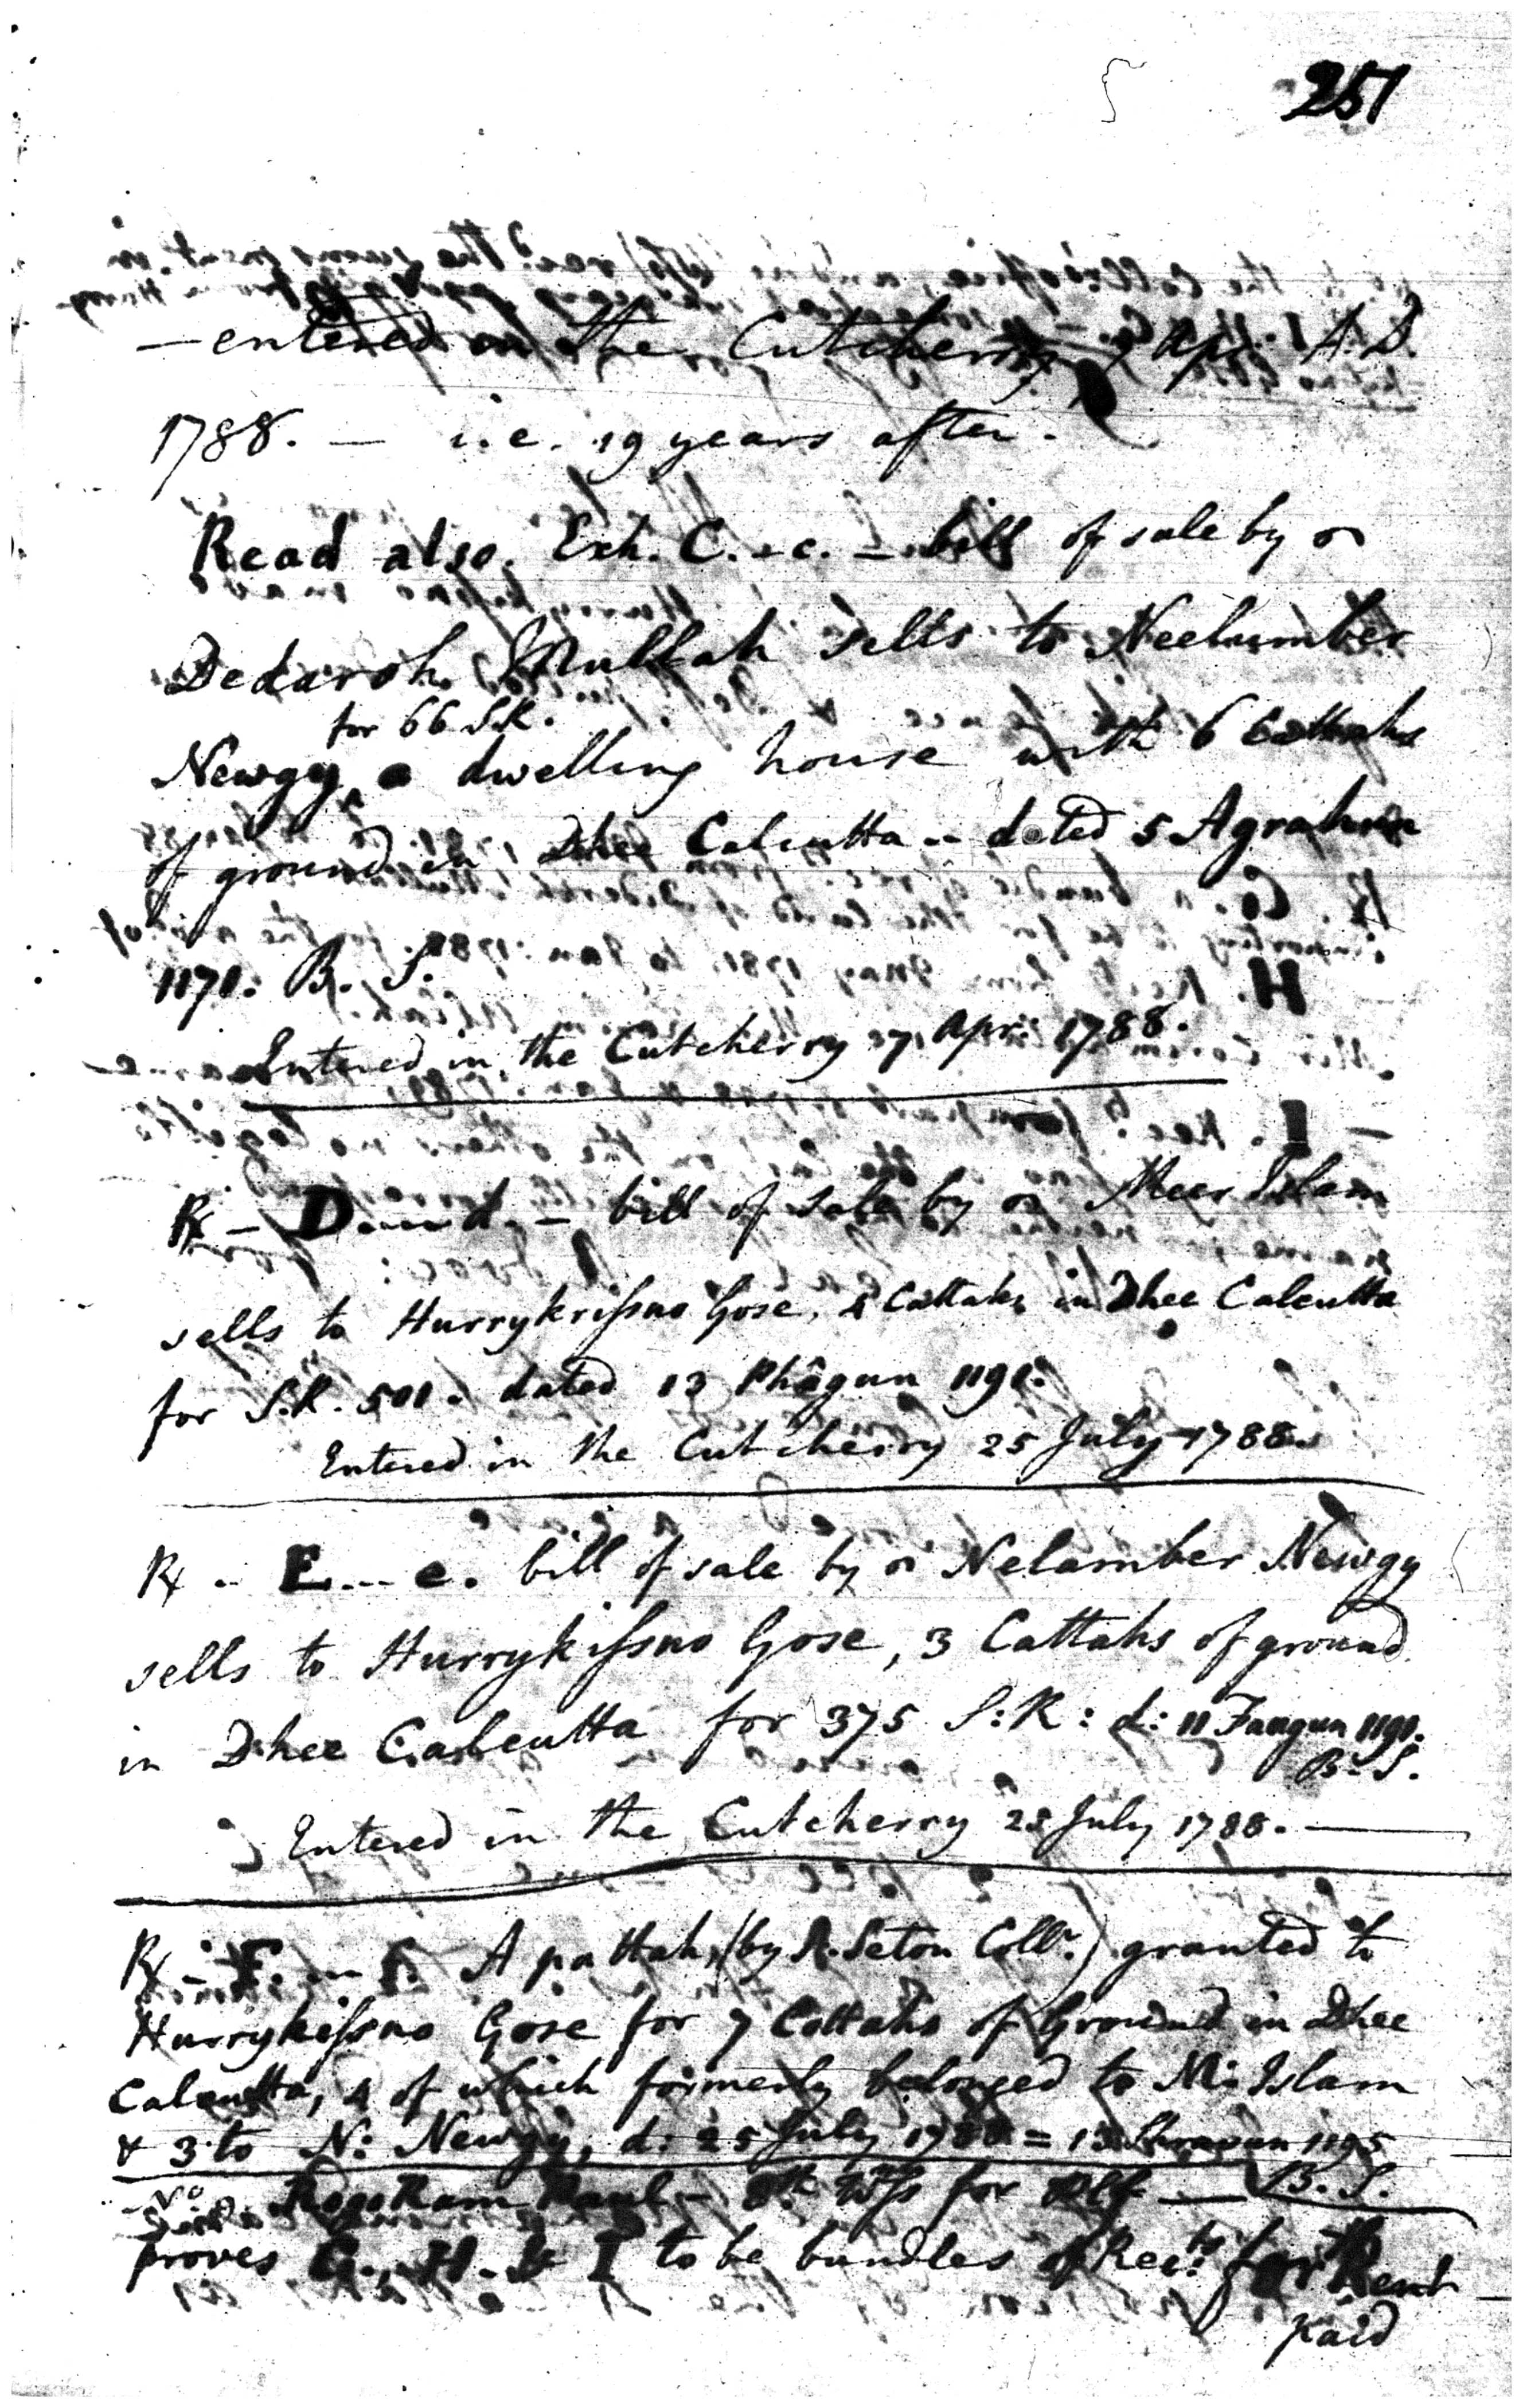 251
— entered in the Cutcherry 7 Apr: A.D.
1788. — i.e. 19 years after.
Read also. Exh. C. - c. — bill of sale by wh
Dedaroh Mullah sells to Neelumber
for 66 S.R.
Newgy a dwelling house with 6 Cottahs
of ground in Dhee Calcutta — dated 5 Agrahun
1171. B. S.
Entered in the Cutcherry 7 Apr: 1788.
Rd — D.....d. — bill of sale by wh Meer Islam
sells to Hurrykrissno Gose, 4 Cattahs in Dhee Calcutta
for S.R. 501. dated 13 Phâgun 1191.
Entered in the Cutcherry 25 July 1788.
Rd — E... e. bill of sale by wh Nelamber Newgy
sells to Hurrykissno Gose, 3 Cattahs of ground
in Dhee Calcutta for 375 S:R: d: 11 Faugun 1191.
B. S.
Entered in the Cutcherry 25 July 1788. —
Rd — F. — f. A pattah, (by A. Seton Collr.) granted to
Hurrykissno Gose for 7 Cottahs of Ground in Dhee
Calcutta, 4 of which formerly belonged to M: Islam
& 3 to N: Newgy, d: 25 July 1788 = 13 Shravan 1195
B. S.
for Plff —
proves G., H. & I to be bundles of Rects. for Rent
paid